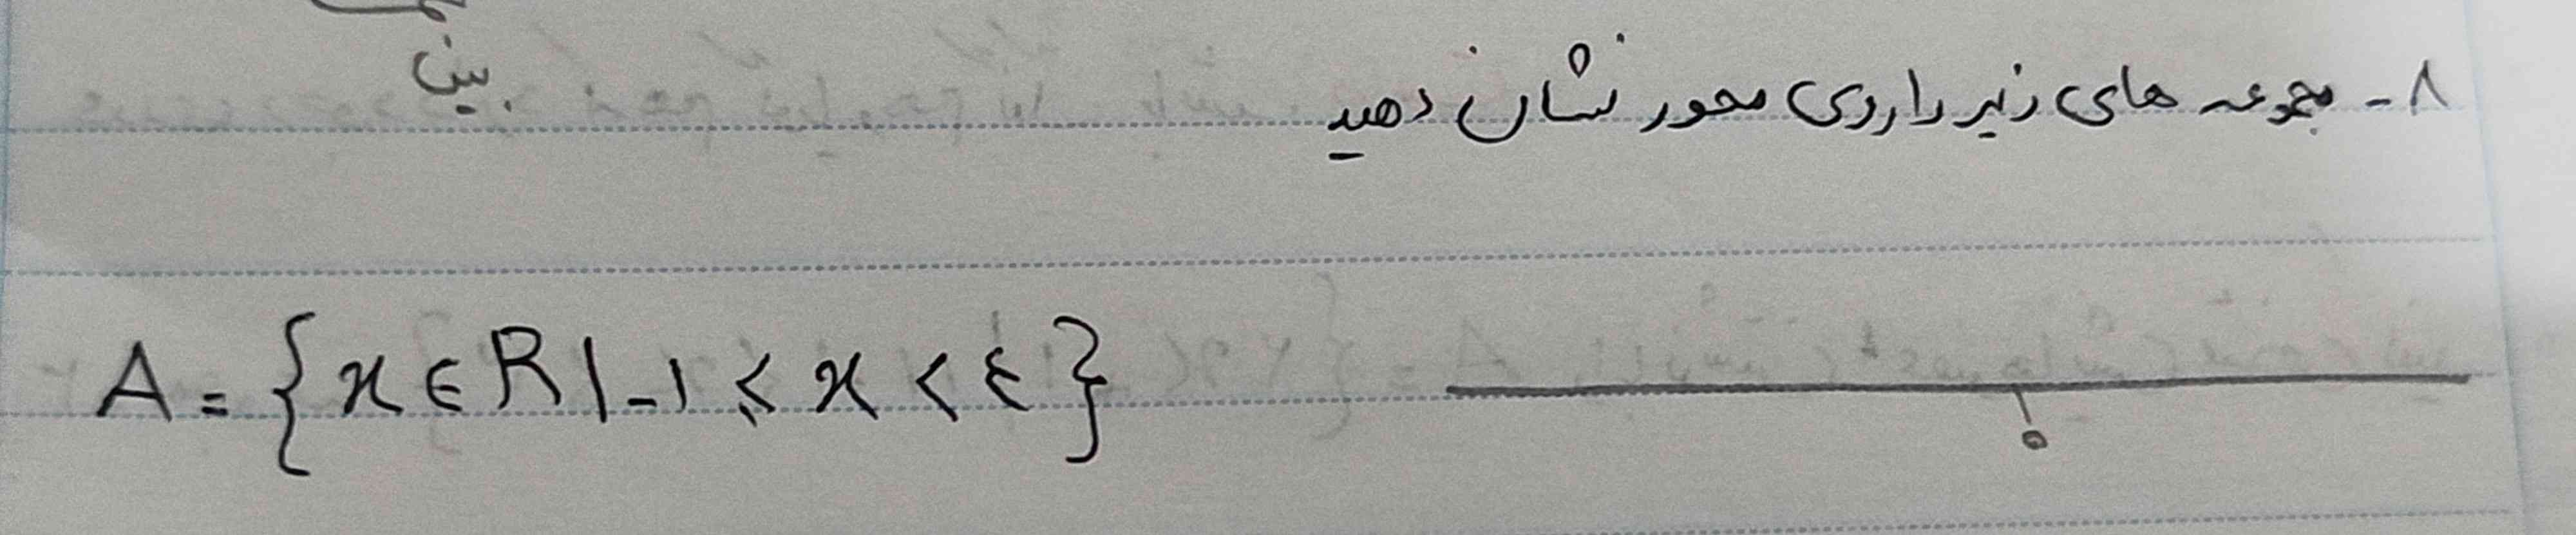 بین
۸- مجموعه های زیر را روی محور نشان دهید
A = {x ∈ R | -۱ ≤ x < ٤}
۰